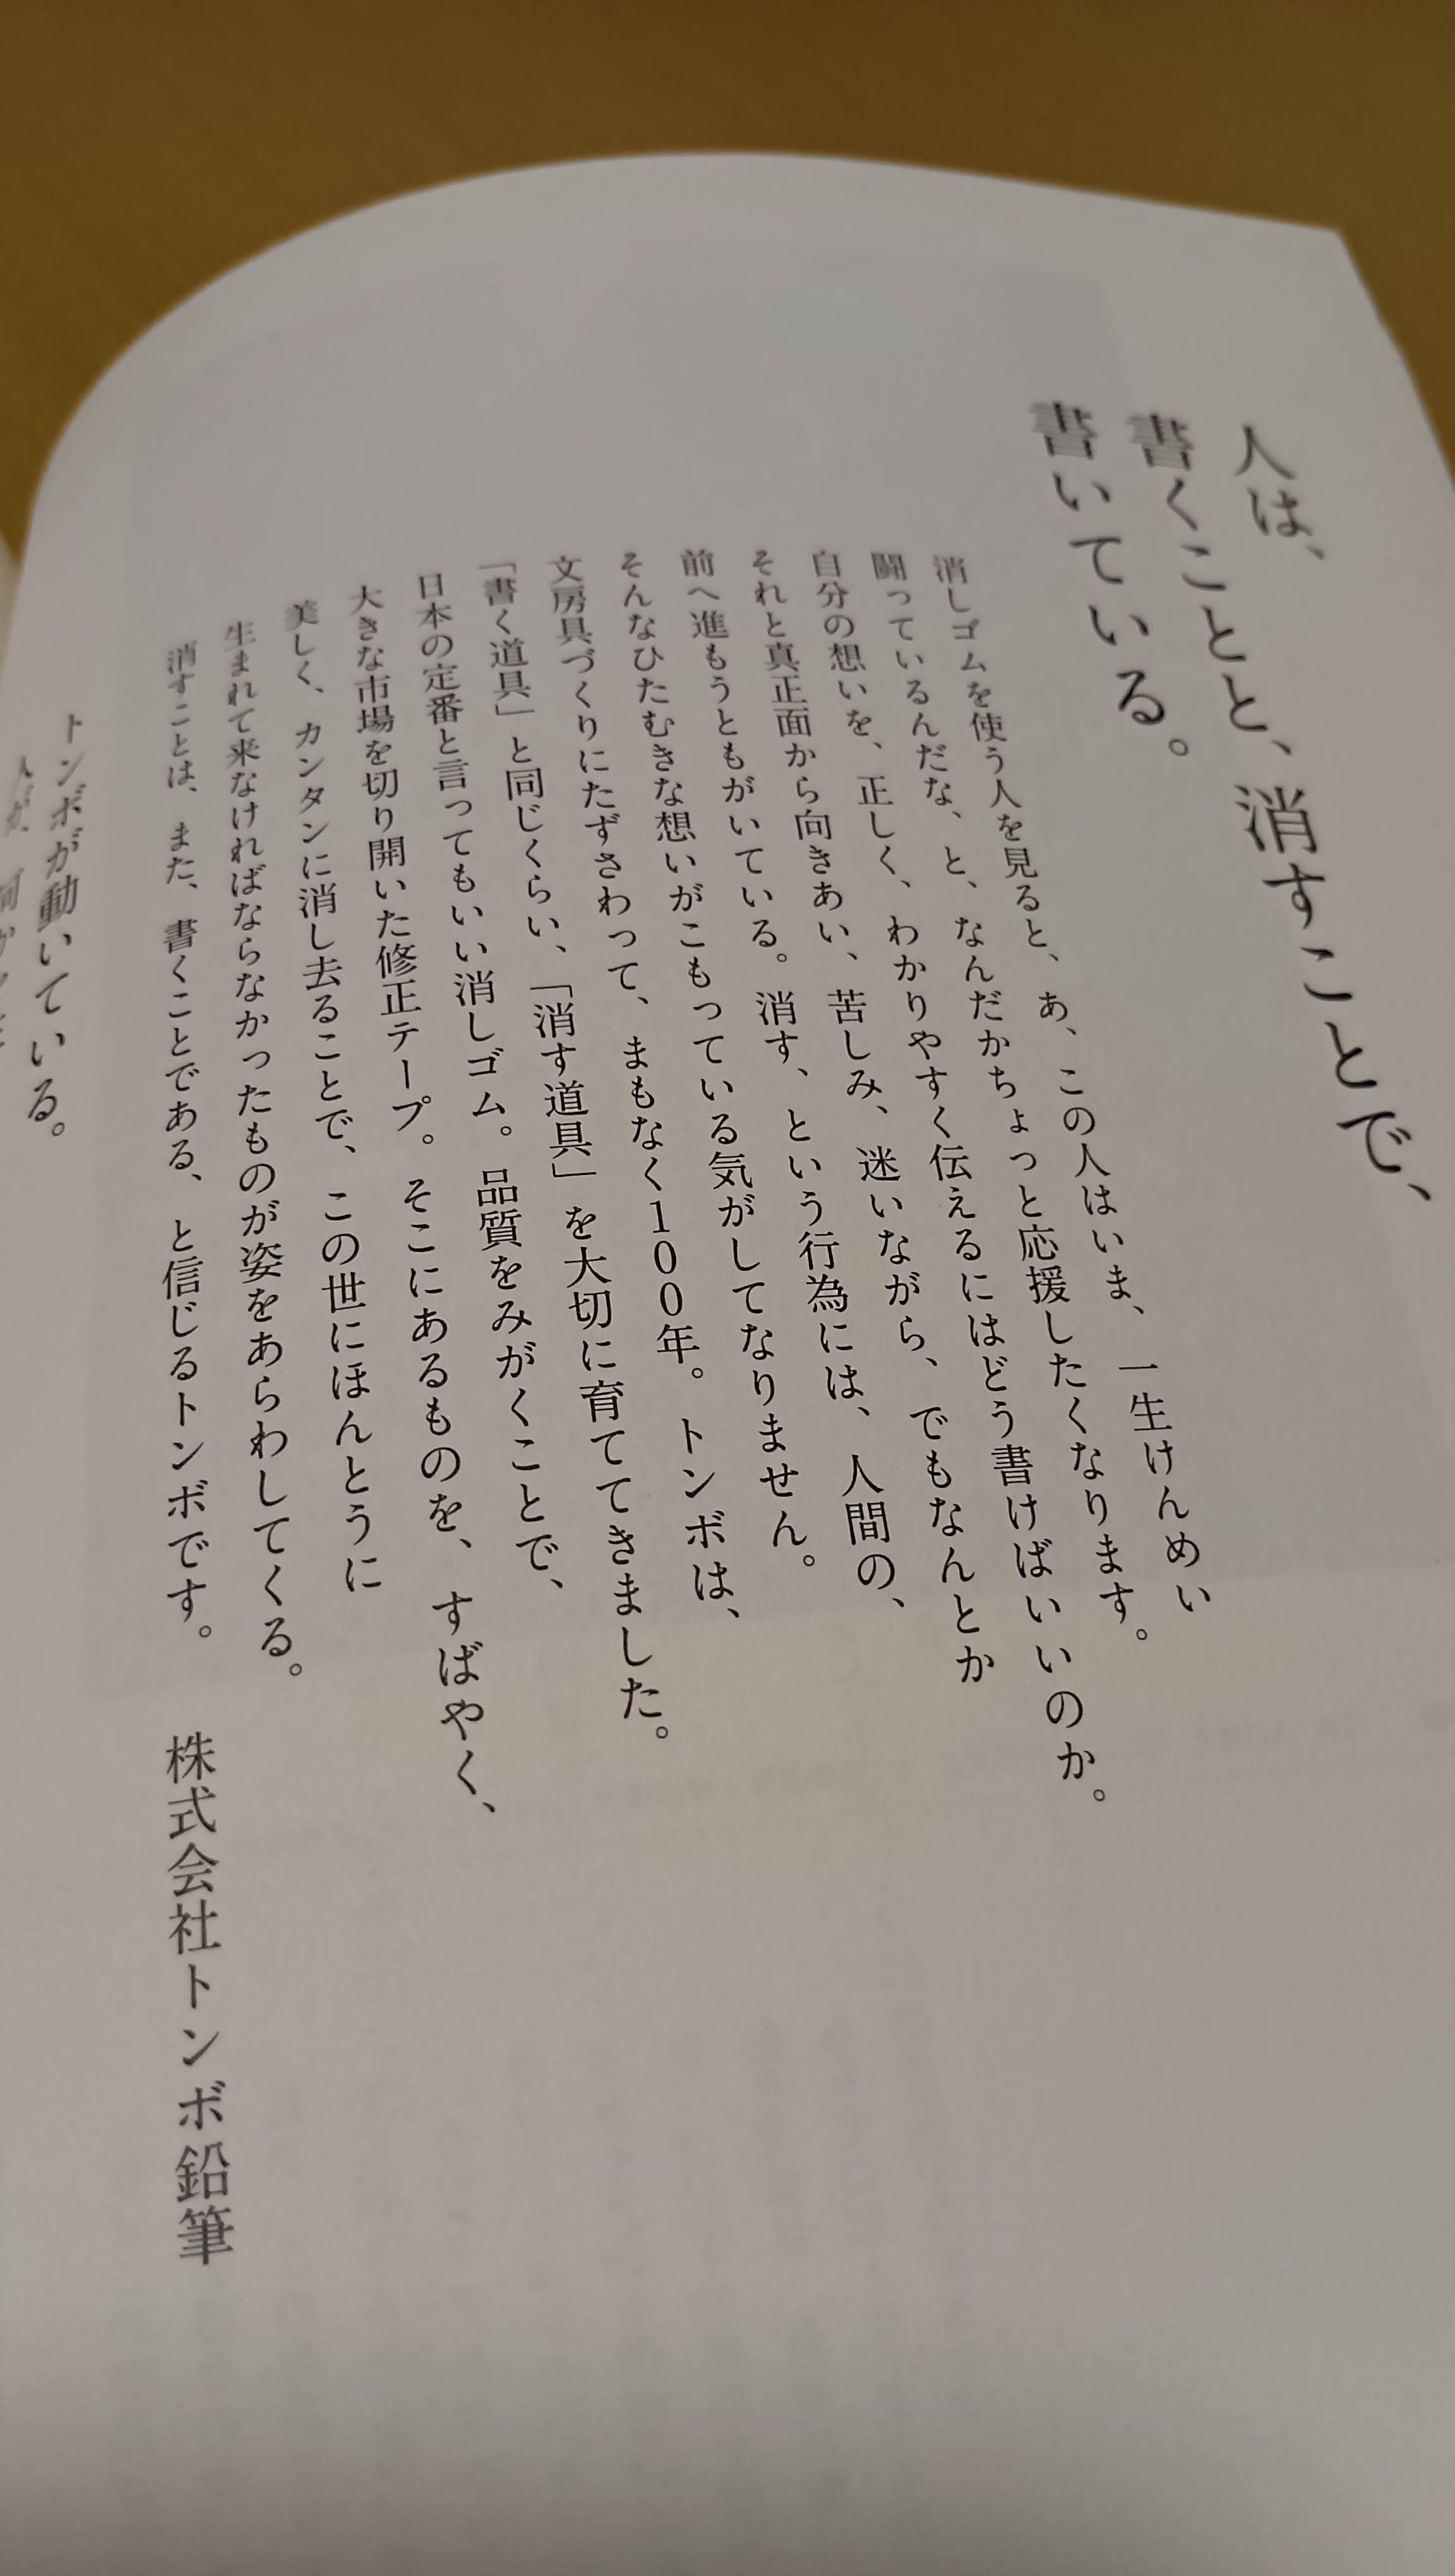 人は、
書くことと、消すことで、
書いている。
消しゴムを使う人を見ると、あ、この人はいま、一生けんめい
闘っているんだな、と、なんだかちょっと応援したくなります。
自分の想いを、正しく、わかりやすく伝えるにはどう書けばいいのか。
それと真正面から向きあい、苦しみ、迷いながら、でもなんとか
前へ進もうともがいている。消す、という行為には、人間の、
そんなひたむきな想いがこもっている気がしてなりません。
文房具づくりにたずさわって、まもなく100年。トンボは、
「書く道具」と同じくらい、「消す道具」を大切に育ててきました。
日本の定番と言ってもいい消しゴム。品質をみがくことで、
大きな市場を切り開いた修正テープ。そこにあるものを、すばやく、
美しく、カンタンに消し去ることで、この世にほんとうに
生まれて来なければならなかったものが姿をあらわしてくる。
消すことは、また、書くことである、と信じるトンボです。 株式会社トンボ鉛筆
トンボが動いている。